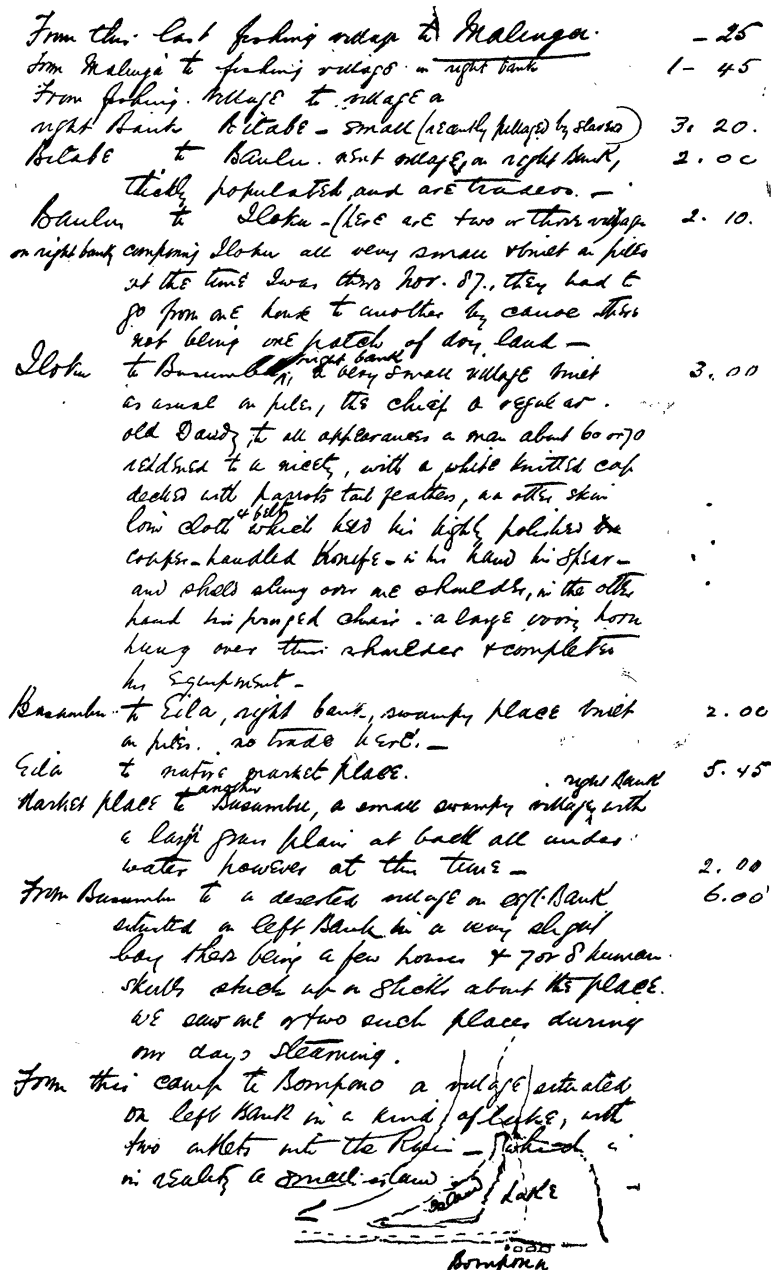 From this last fishing village to Malinga. - 25
From Malinga to fishing village on right bank 1 - 45
From fishing village to village on
right Bank Bitabe - small (recently pillaged by slavers) 3. 20.
Bitabe to Baulu. next village, on right Bank, 2. 00
thickly populated, and are traders. -
Baulu to Iloku - (here are two or three village 2. 10.
on right bank composing Iloku all very small & built on piles
at the time I was there Nov. 87., they had to
go from one house to another by canoe there
not being one patch of dry land -
Iloku to Busumbu, right bank a very small village built 3. 00
as usual on piles, the chief a regular
old Dandy, to all appearances a man about 60 or 70
reddened to a nicety, with a white knitted cap
decked with parrots tail feathers, an otter skin
loin cloth & belt which held his highly polished
copper-handled knife - in his hand his spear -
and shield slung over one shoulder, in the other
hand his pronged chair - a large ivory horn
hung over this shoulder & completes
his Equipment -
Busumbu to Eila, right bank, swampy place built 2. 00
on piles. no trade here. -
Eila to native market place. 5. 45
Market place to another Busumbu, a small swampy village, right Bank with
a large grass plain at back all under
water however at this time - 2. 00
From Busumbu to a deserted village on left Bank 6. 00
situated on left Bank in a very slight
bay there being a few houses & 7 or 8 human
skulls stuck up on sticks about the place.
we saw one or two such places during
our days steaming.
From this camp to Bompono a village situated
on left Bank in a kind of lake, with
two outlets into the River - which is
in reality a small island
Island Lake
Bompona